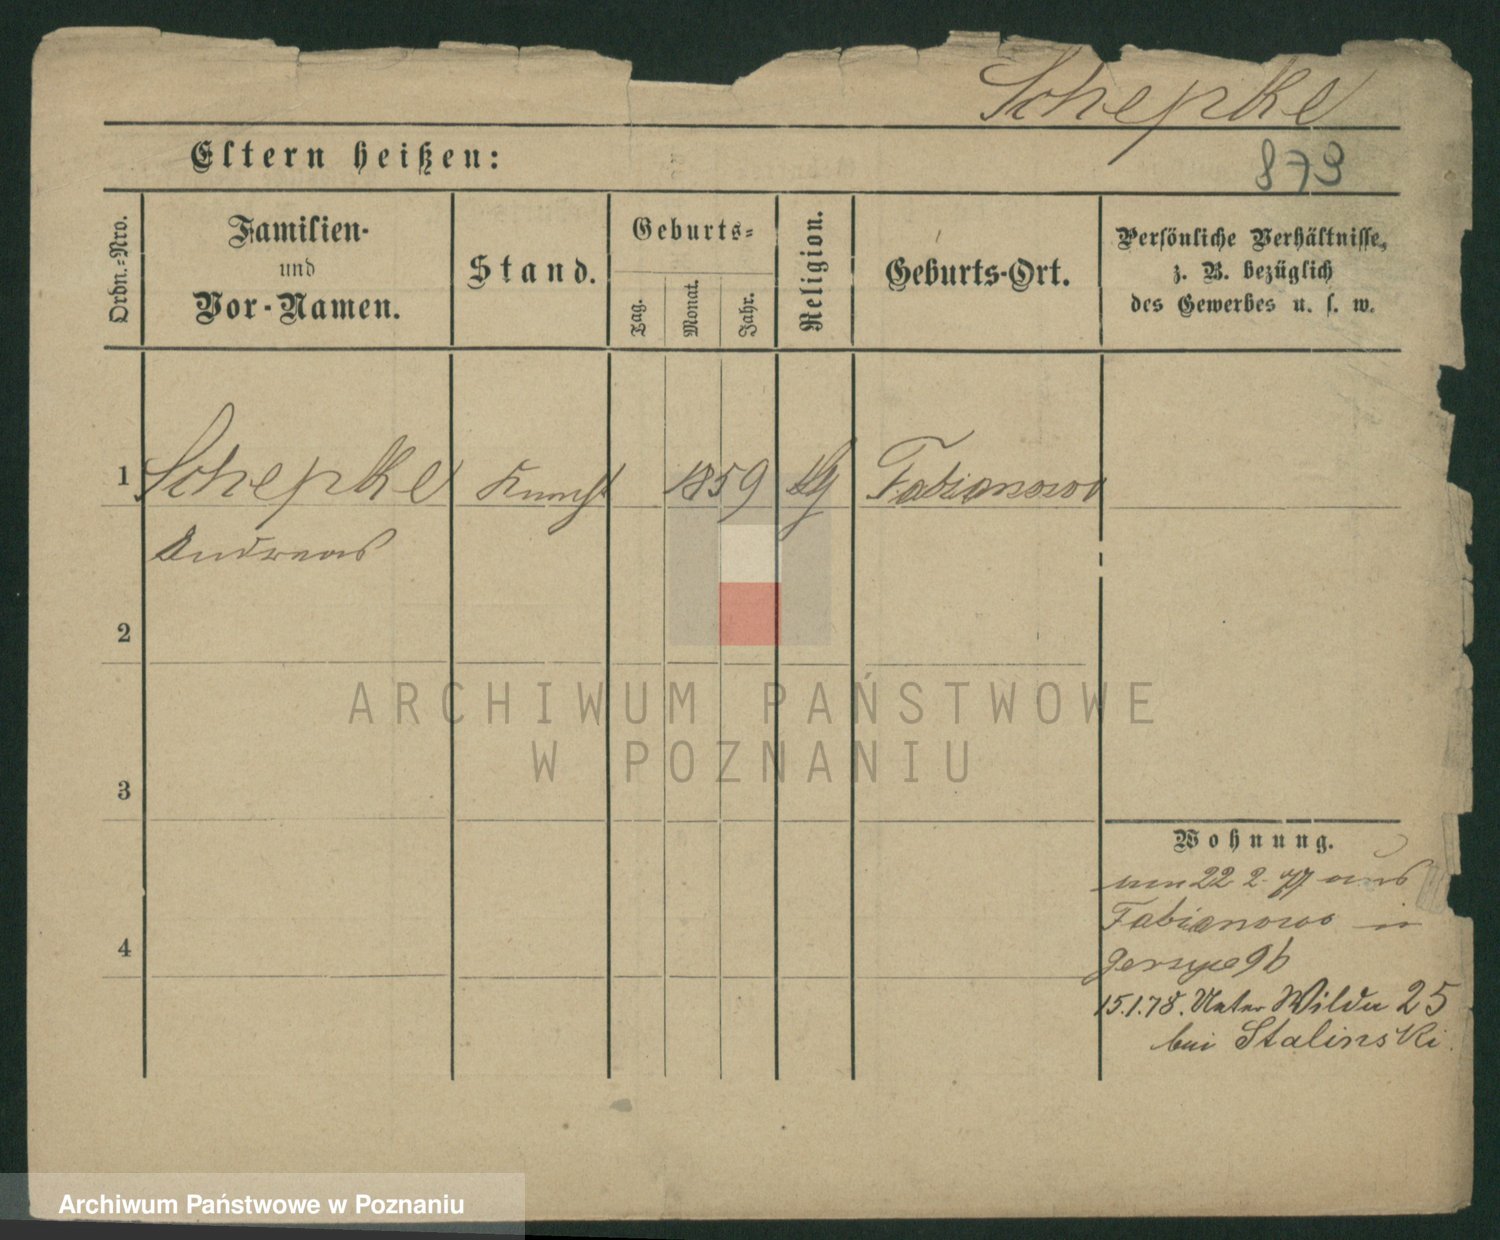 Schepke
Eltern heißen:
873
Ordn.-Nro.
Familien-
und
Vor-Namen.
Stand.
Geburts-
Tag.
Monat.
Jahr.
Religion.
Geburts-Ort.
Persönliche Verhältnisse,
z. B. bezüglich
des Gewerbes u. s. w.
1 Schepke Knecht 1859 Fabianowo
Andreas
2
ARCHIWUM PAŃSTWOWE
W POZNANIU
3
Wohnung.
22 2. 77 aus
Fabianowo in
4
Jersyce 96
15.1.78. Unter Wilda 25
bei Stalinski.
Archiwum Państwowe w Poznaniu